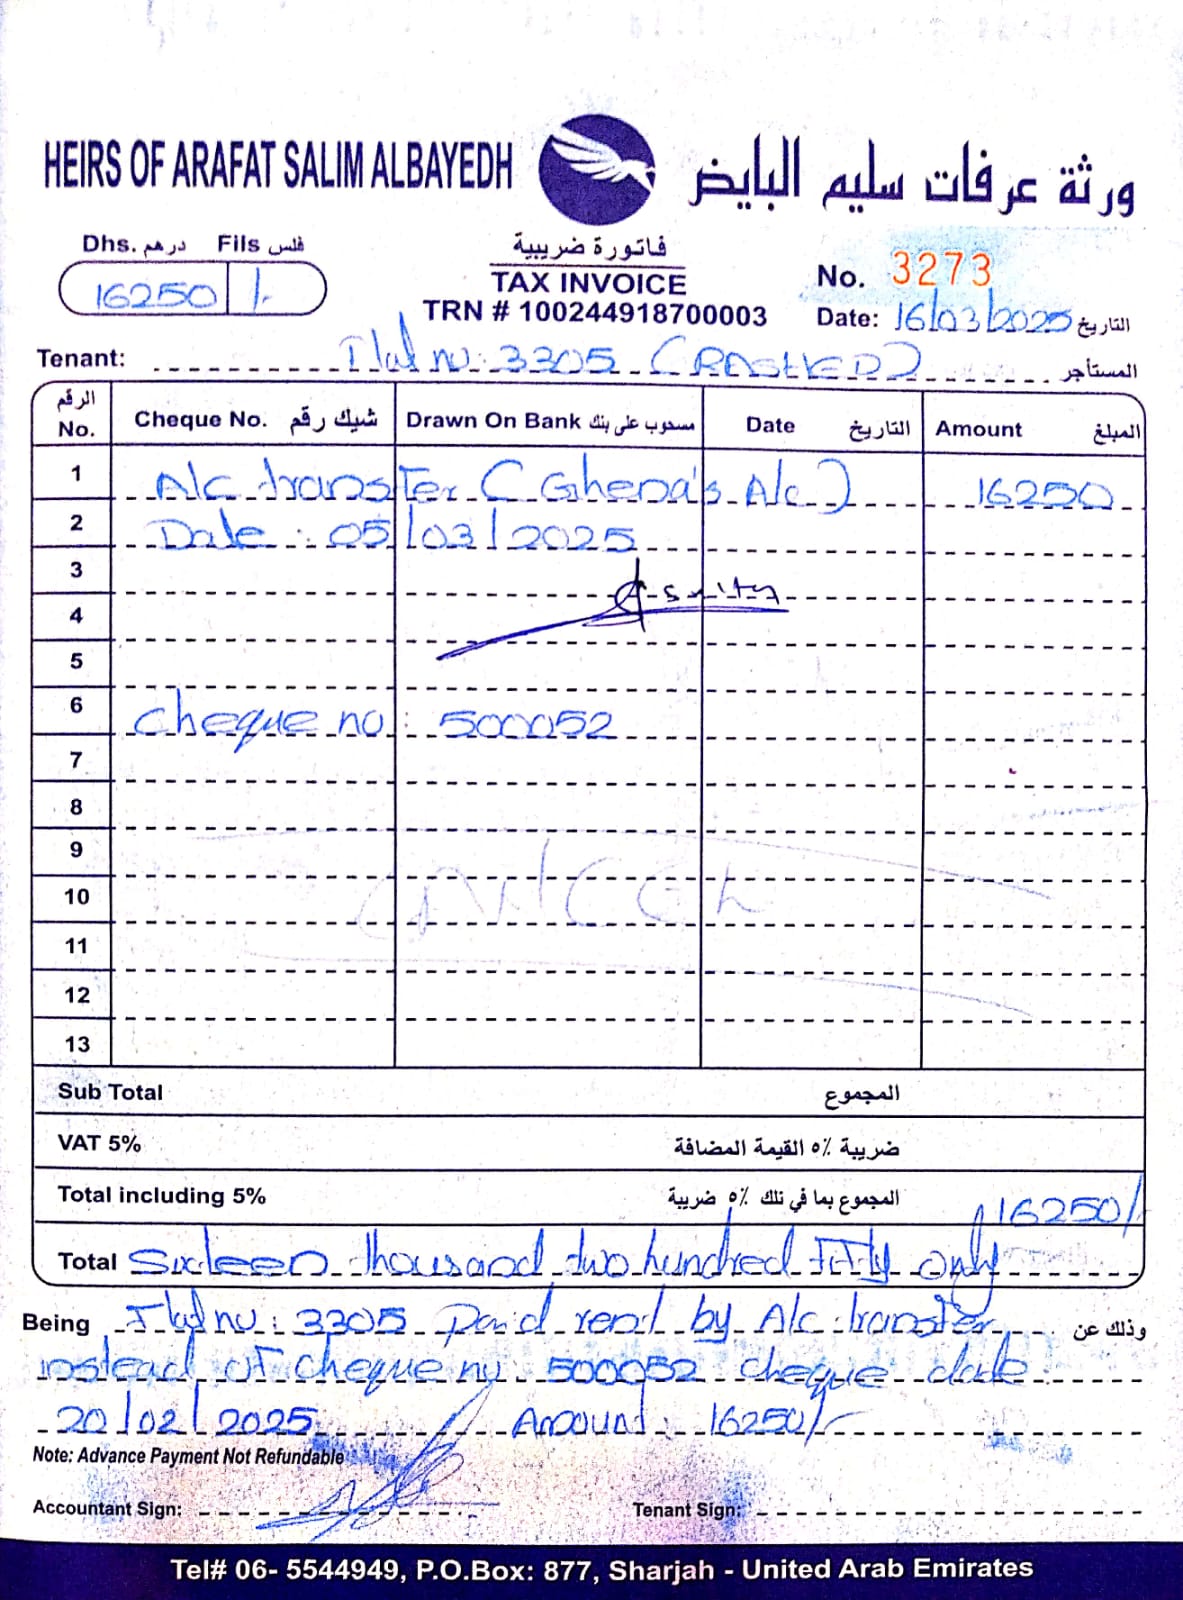 HEIRS OF ARAFAT SALIM ALBAYEDH ورثة عرفات سليم البايض
Dhs. درهم Fils فلس
16250 /-
فاتورة ضريبية
TAX INVOICE
TRN # 100244918700003
No. 3273
Date: 16/03/2025 التاريخ
Tenant: Flat no: 3305 (RASHED) المستأجر
الرقم No. Cheque No. شيك رقم Drawn On Bank مسحوب على بنك Date التاريخ Amount المبلغ
1 A/c transfer (Ghena's A/c) 16250
2 Date: 05/03/2025
3
4
5
6 cheque no: 500052
7
8
9
10
11
12
13
Sub Total المجموع
VAT 5% ضريبة ٥٪ القيمة المضافة
Total including 5% المجموع بما في تلك ٥٪ ضريبة 16250/-
Total Sixteen thousand two hundred fifty only
Being Flat no: 3305 paid rent by A/c transfer وذلك عن
instead of cheque no: 500052 cheque date:
20/02/2025 Amount: 16250/-
Note: Advance Payment Not Refundable
Accountant Sign: Tenant Sign:
Tel# 06- 5544949, P.O.Box: 877, Sharjah - United Arab Emirates